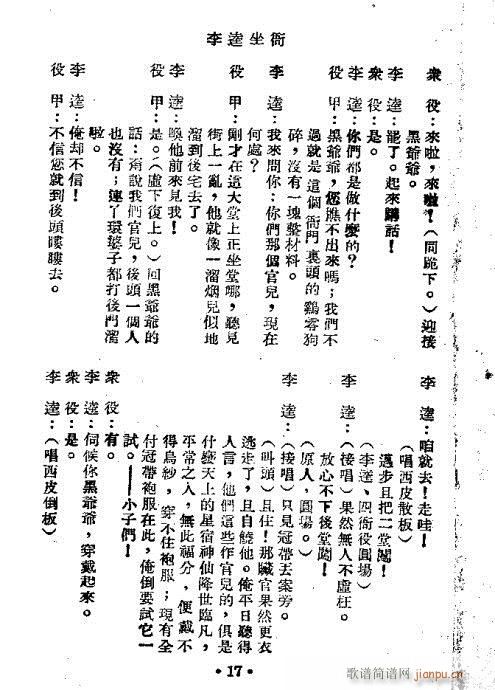 李逵坐衙
衆　役：來啦，來啦！（同跪下。）迎接
黑爺爺。
李　逵：罷了。起來講話！
衆　役：是。
李　逵：你們都是做什麼的？
役　甲：黑爺爺，您瞧不出來嗎；我們不
過就是這個衙門裏頭的鷄零狗
碎，沒有一塊整材料。
李　逵：我來問你：你們那個官兒，現在
何處？
役　甲：剛才在這大堂上正坐堂哪，聽見
街上一亂，他就像一溜烟兒似地
溜到後宅去了。
李　逵：喚他前來見我！
役　甲：是。（虛下復上。）回黑爺爺的
話：甭說我們官兒，後頭一個人
也沒有；連丫環婆子都打後門溜
啦。
李　逵：俺却不信！
役　甲：不信您就到後頭瞜瞜去。
李　逵：喧就去！走哇！
（唱西皮散板）
邁步且把二堂闖！
（李逵、四衙役圓場）
李　逵：（接唱）果然無人不虛枉。
放心不下後堂闖！
（原人，圓場。）
李　逵：（接唱）只見冠帶丟案旁。
（叫頭）且住！那臟官果然更衣
逃走了，且自饒他。俺平日聽得
人言，他們這些作官兒的，俱是
什麼天上的星宿神仙降世臨凡，
平常之人，無此福分，便戴不
得烏紗，穿不住袍服；現有全
付冠帶袍服在此，俺倒要試它一
試。——小子們！
衆　役：有。
李　逵：伺候你黑爺爺，穿戴起來。
衆　役：是。
李　逵：（唱西皮倒板）
·17·
歌谱简谱网
jianpu.cn